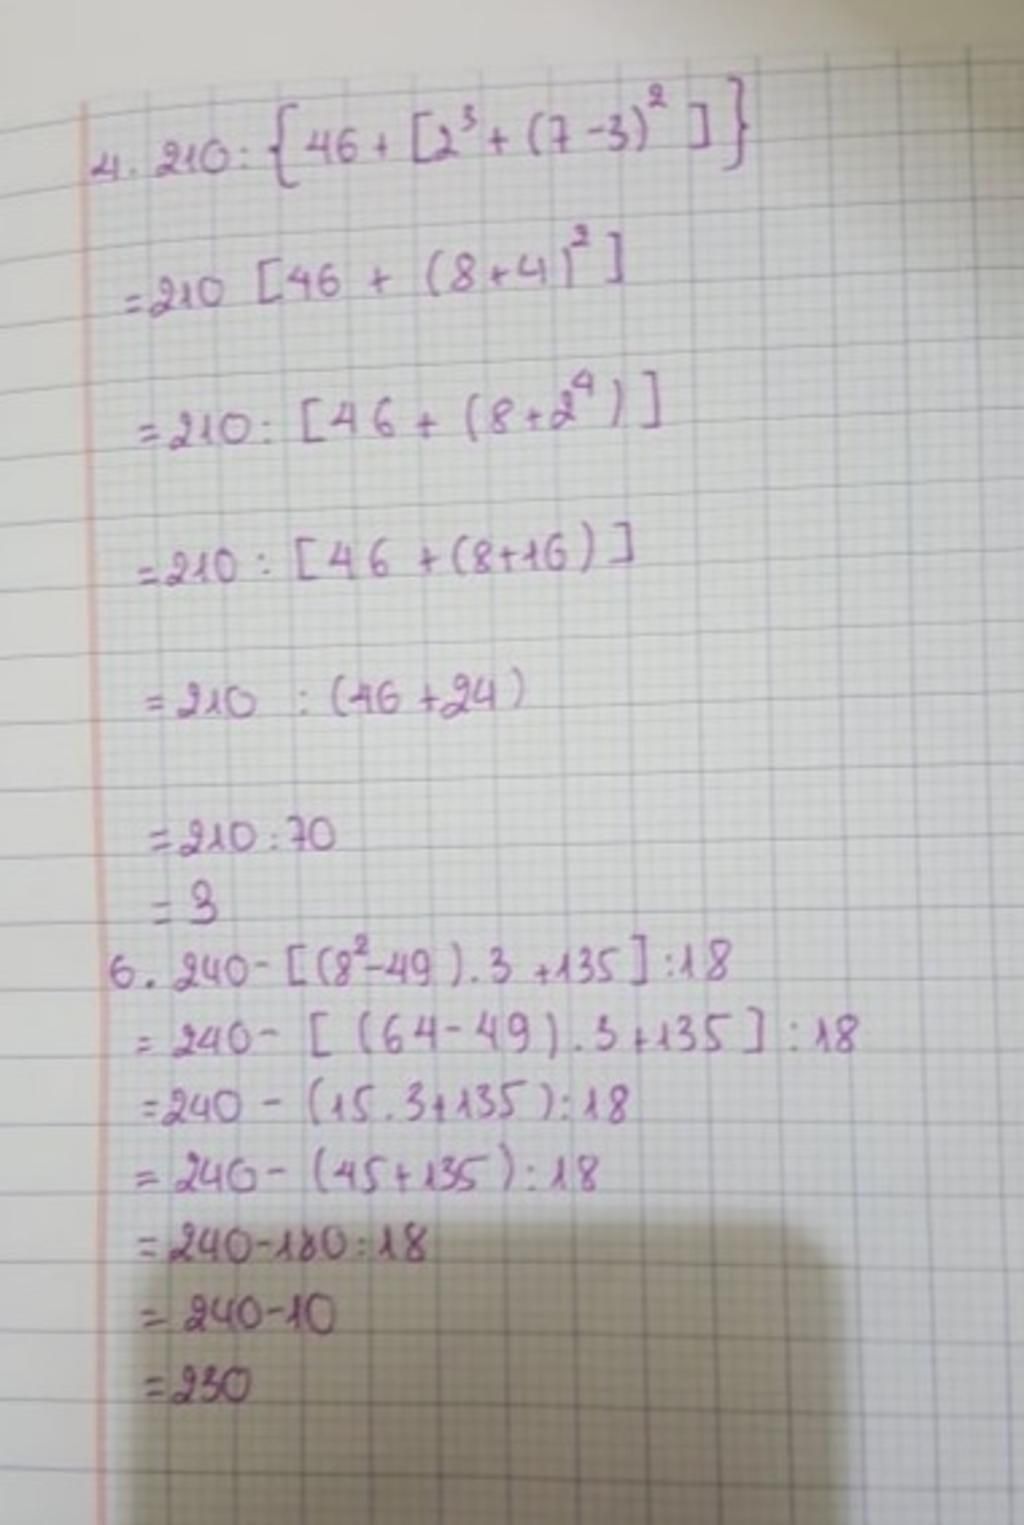 4. 210: {46 + [2³ + (7 -3)² ]}
=210 [46 + (8+4)² ]
=210: [46 + (8+2⁴)]
=210 : [46 +(8+16)]
=210 : (46 +24)
=210:70
= 3
6. 240- [(8²-49).3 +135] :18
= 240- [ (64-49).3+135] : 18
=240 - (15.3+135):18
= 240- (45+135):18
=240-180:18
= 240-10
=230